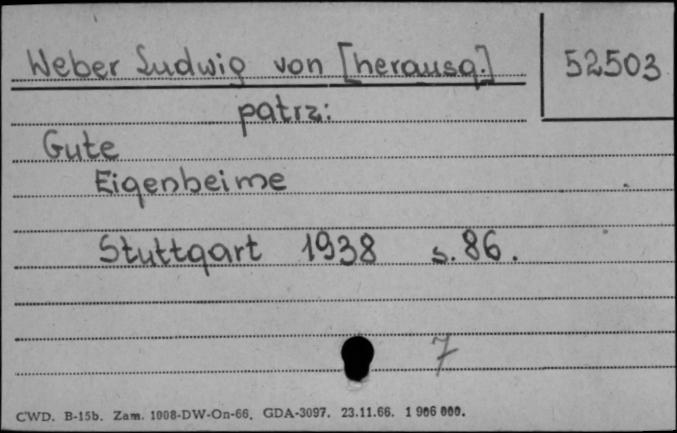 Weber Ludwig von [herausg.]
52503
patrz:
Gute
Eigenheime
Stuttgart 1938 s. 86.
7
CWD. B-15b. Zam. 1008-DW-On-66. GDA-3097. 23.11.66. 1 906 000.